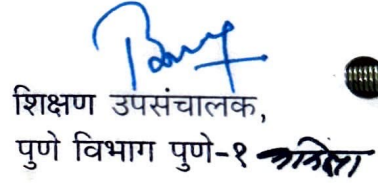 शिक्षण उपसंचालक,
पुणे विभाग पुणे-१